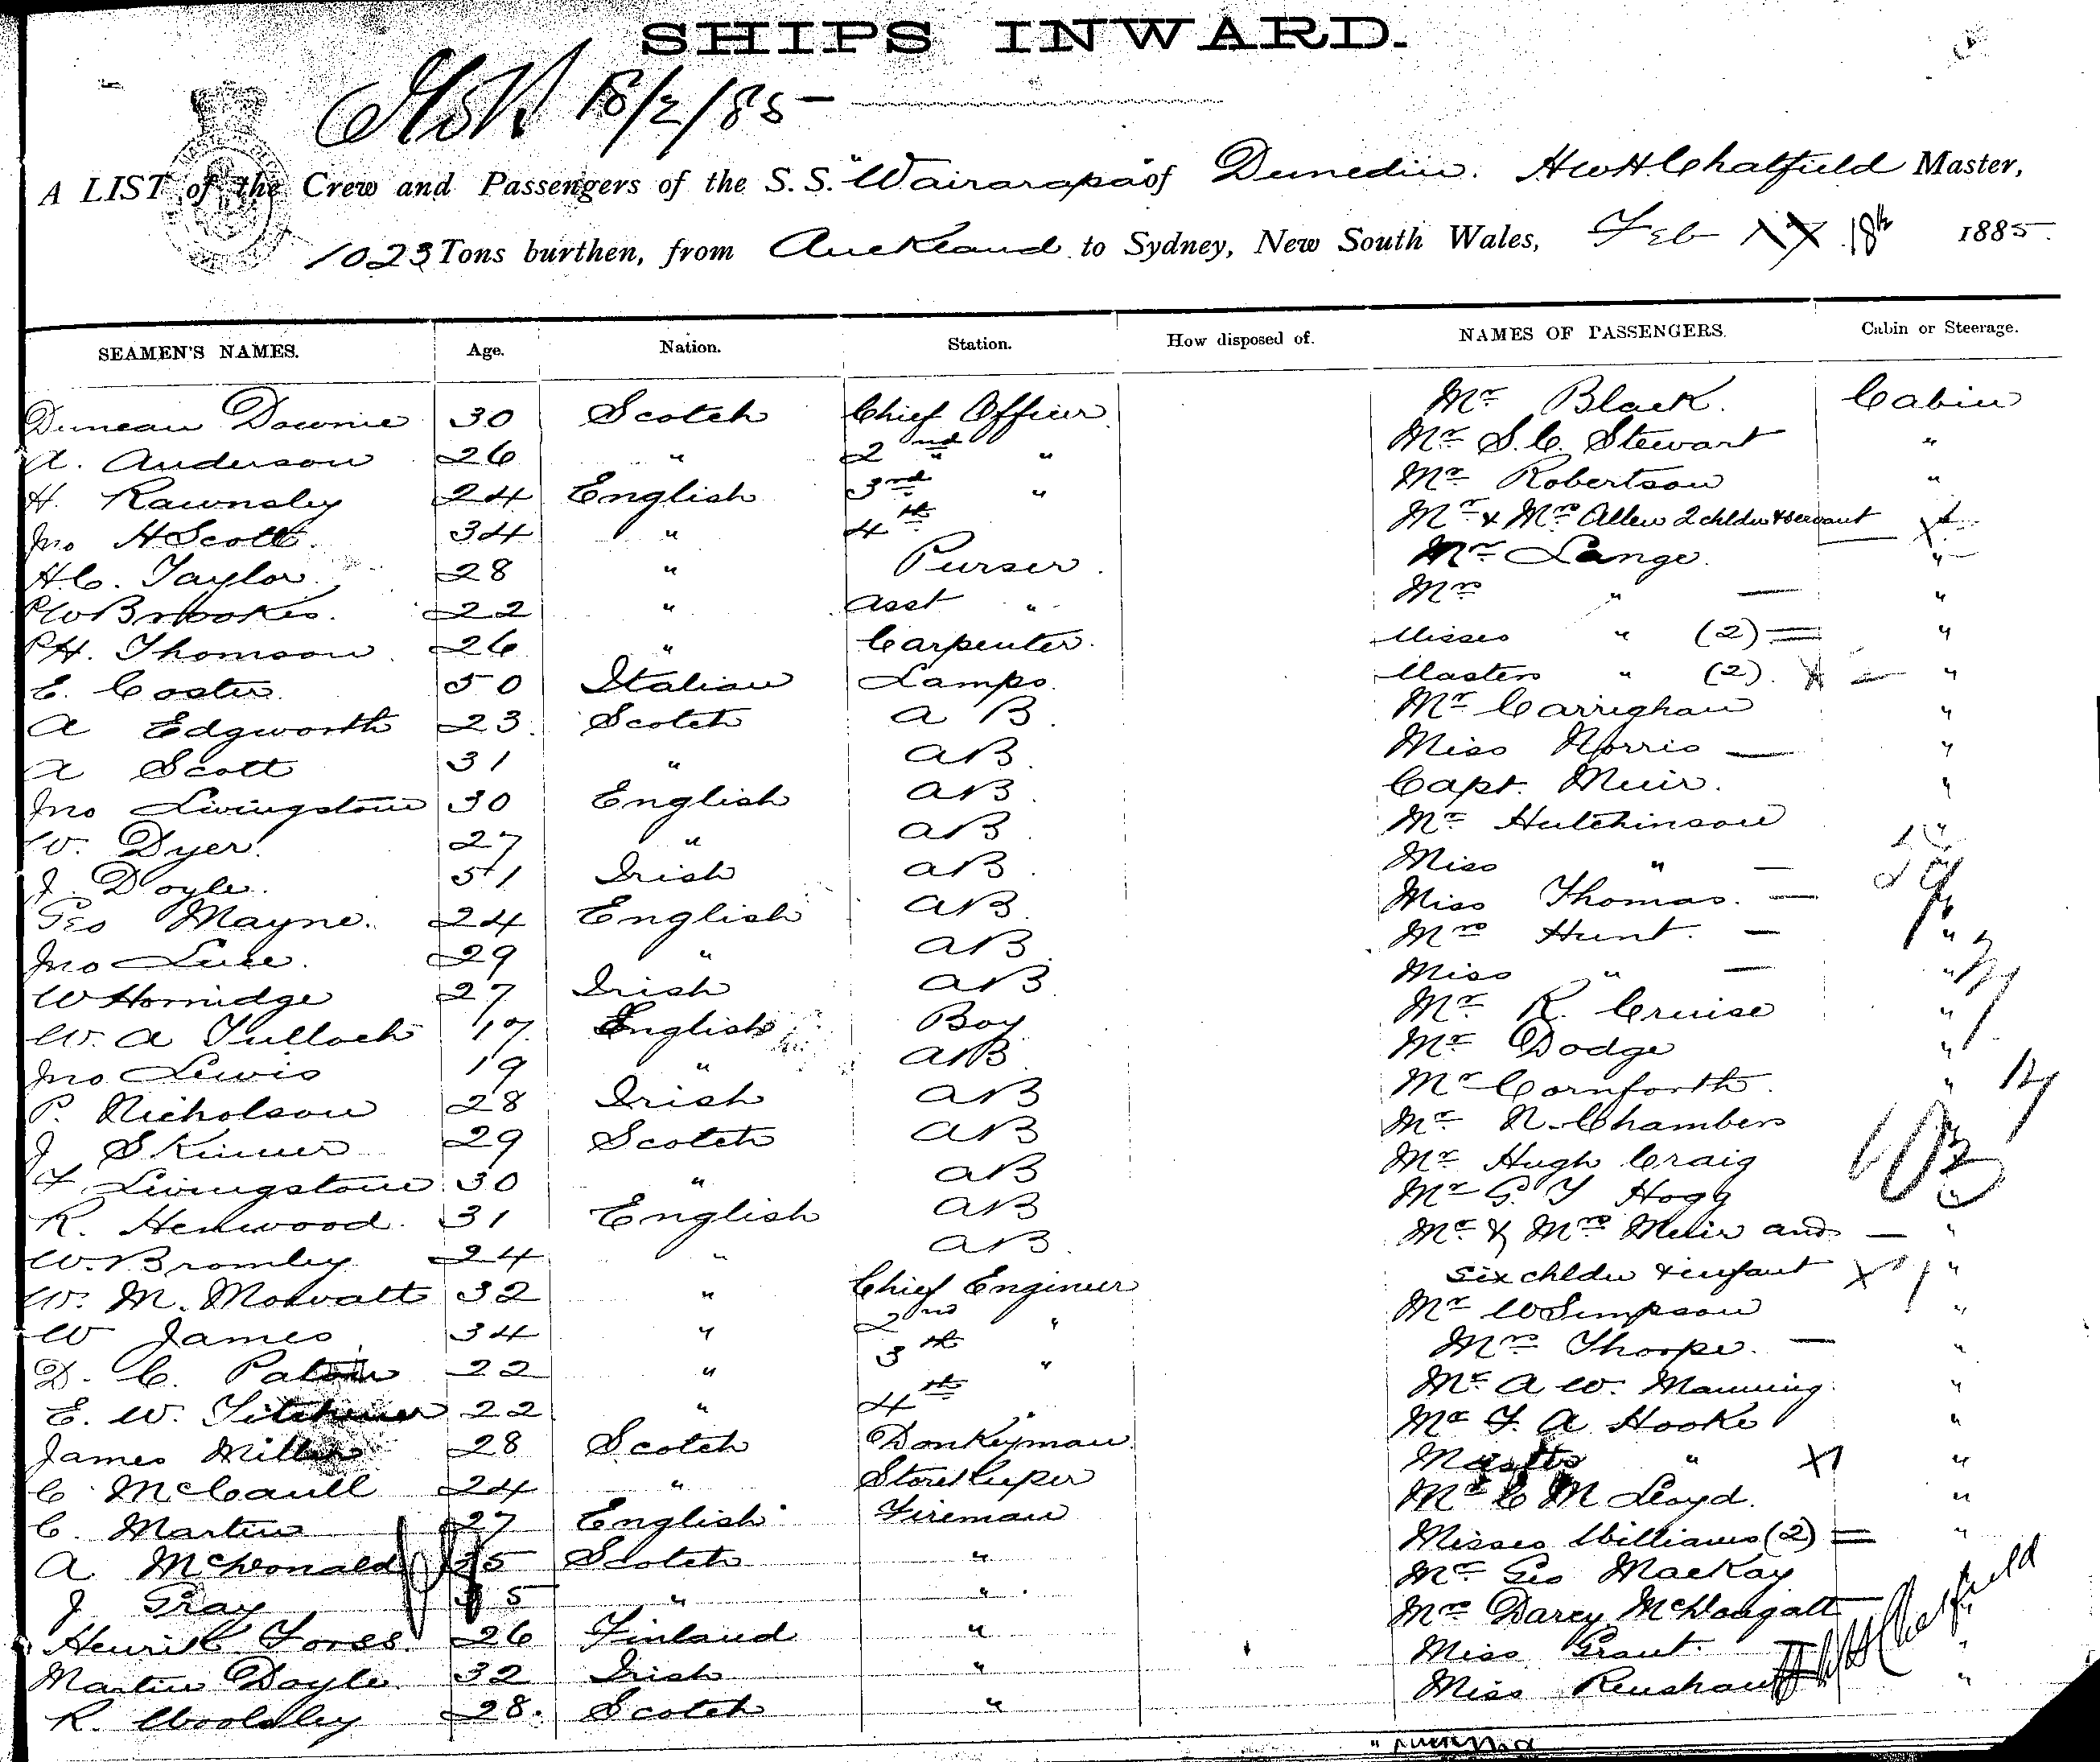 SHIPS INWARD.
18/2/85
A LIST of the Crew and Passengers of the S.S. "Wairarapa" of Dunedin. HWH Chatfield Master,
1023 Tons burthen, from Auckland to Sydney, New South Wales, Feb 17 18th 1885.
SEAMEN'S NAMES. Age. Nation. Station. How disposed of. NAMES OF PASSENGERS. Cabin or Steerage.
Duncan Downie 30 Scotch Chief Officer Mr Black. Cabin
A. Anderson 26 " 2nd " Mr S. C. Stewart "
H. Rawnsley 24 English 3rd " Mr Robertson "
Jno H Scott. 34 " 4th Mr & Mrs Allen 2 chldn & servant
H C. Taylor 28 " Purser. Mr Lange. "
P W Brookes. 22 " Asst " Mrs " — "
P H. Thomson 26 " Carpenter. Misses " (2) = "
E. Coster 50 Italian Lamps. Masters " (2). X "
A Edgworth 23. Scotch A B. Mr Carrighan "
A Scott 31 " AB. Miss Norris — "
Jno Livingstone 30 English AB. Capt. Muir. "
W. Dyer. 27 " AB. Mr Hutchinson "
J. Doyle. 51 Irish AB. Miss " —
Geo Mayne. 24 English AB. Miss Thomas. —
Jno Luce. 29 " AB. Mrs Hunt. — "
W Horridge 27 Irish AB Miss " — "
W. A Tulloch 17. English Boy Mr R. Cruise "
Jno Lewis 19 " AB Mr Dodge "
P. Nicholson 28 Irish AB Mr Cornforth. "
J Skinner 29 Scotch AB Mr N. Chambers
F. Livingstone 30 " AB Mr Hugh Craig
R. Henwood. 31 English AB Mr G. T Hogg
W. Bromley 24 " AB. Mr & Mrs Muir and — "
W. M. Mowatt 32 " Chief Engineer six chldn & infant X "
W James 34 " 2nd " Mr W Simpson "
D. C. Paton 22 " 3rd " Mrs Thorpe. — "
E. W. 22 " 4th " Mr A W. Manning. "
James Miller 28 Scotch Donkeyman. Mr F. A Hooke "
C McCaull 24 " Storekeeper Master " X "
C. Martin 27 English Fireman Mr C M Lloyd. "
A McDonald 25 Scotch " Misses Williams (2) = "
J Gray 35 " " Mr Geo MacKay
Henrik Forss. 26 Finland " Mrs Darcy McDougall —
Martin Doyle. 32 Irish " Miss Grant. — "
R. Woolsley 28. Scotch " Miss Renshaw "
HWH Chatfield